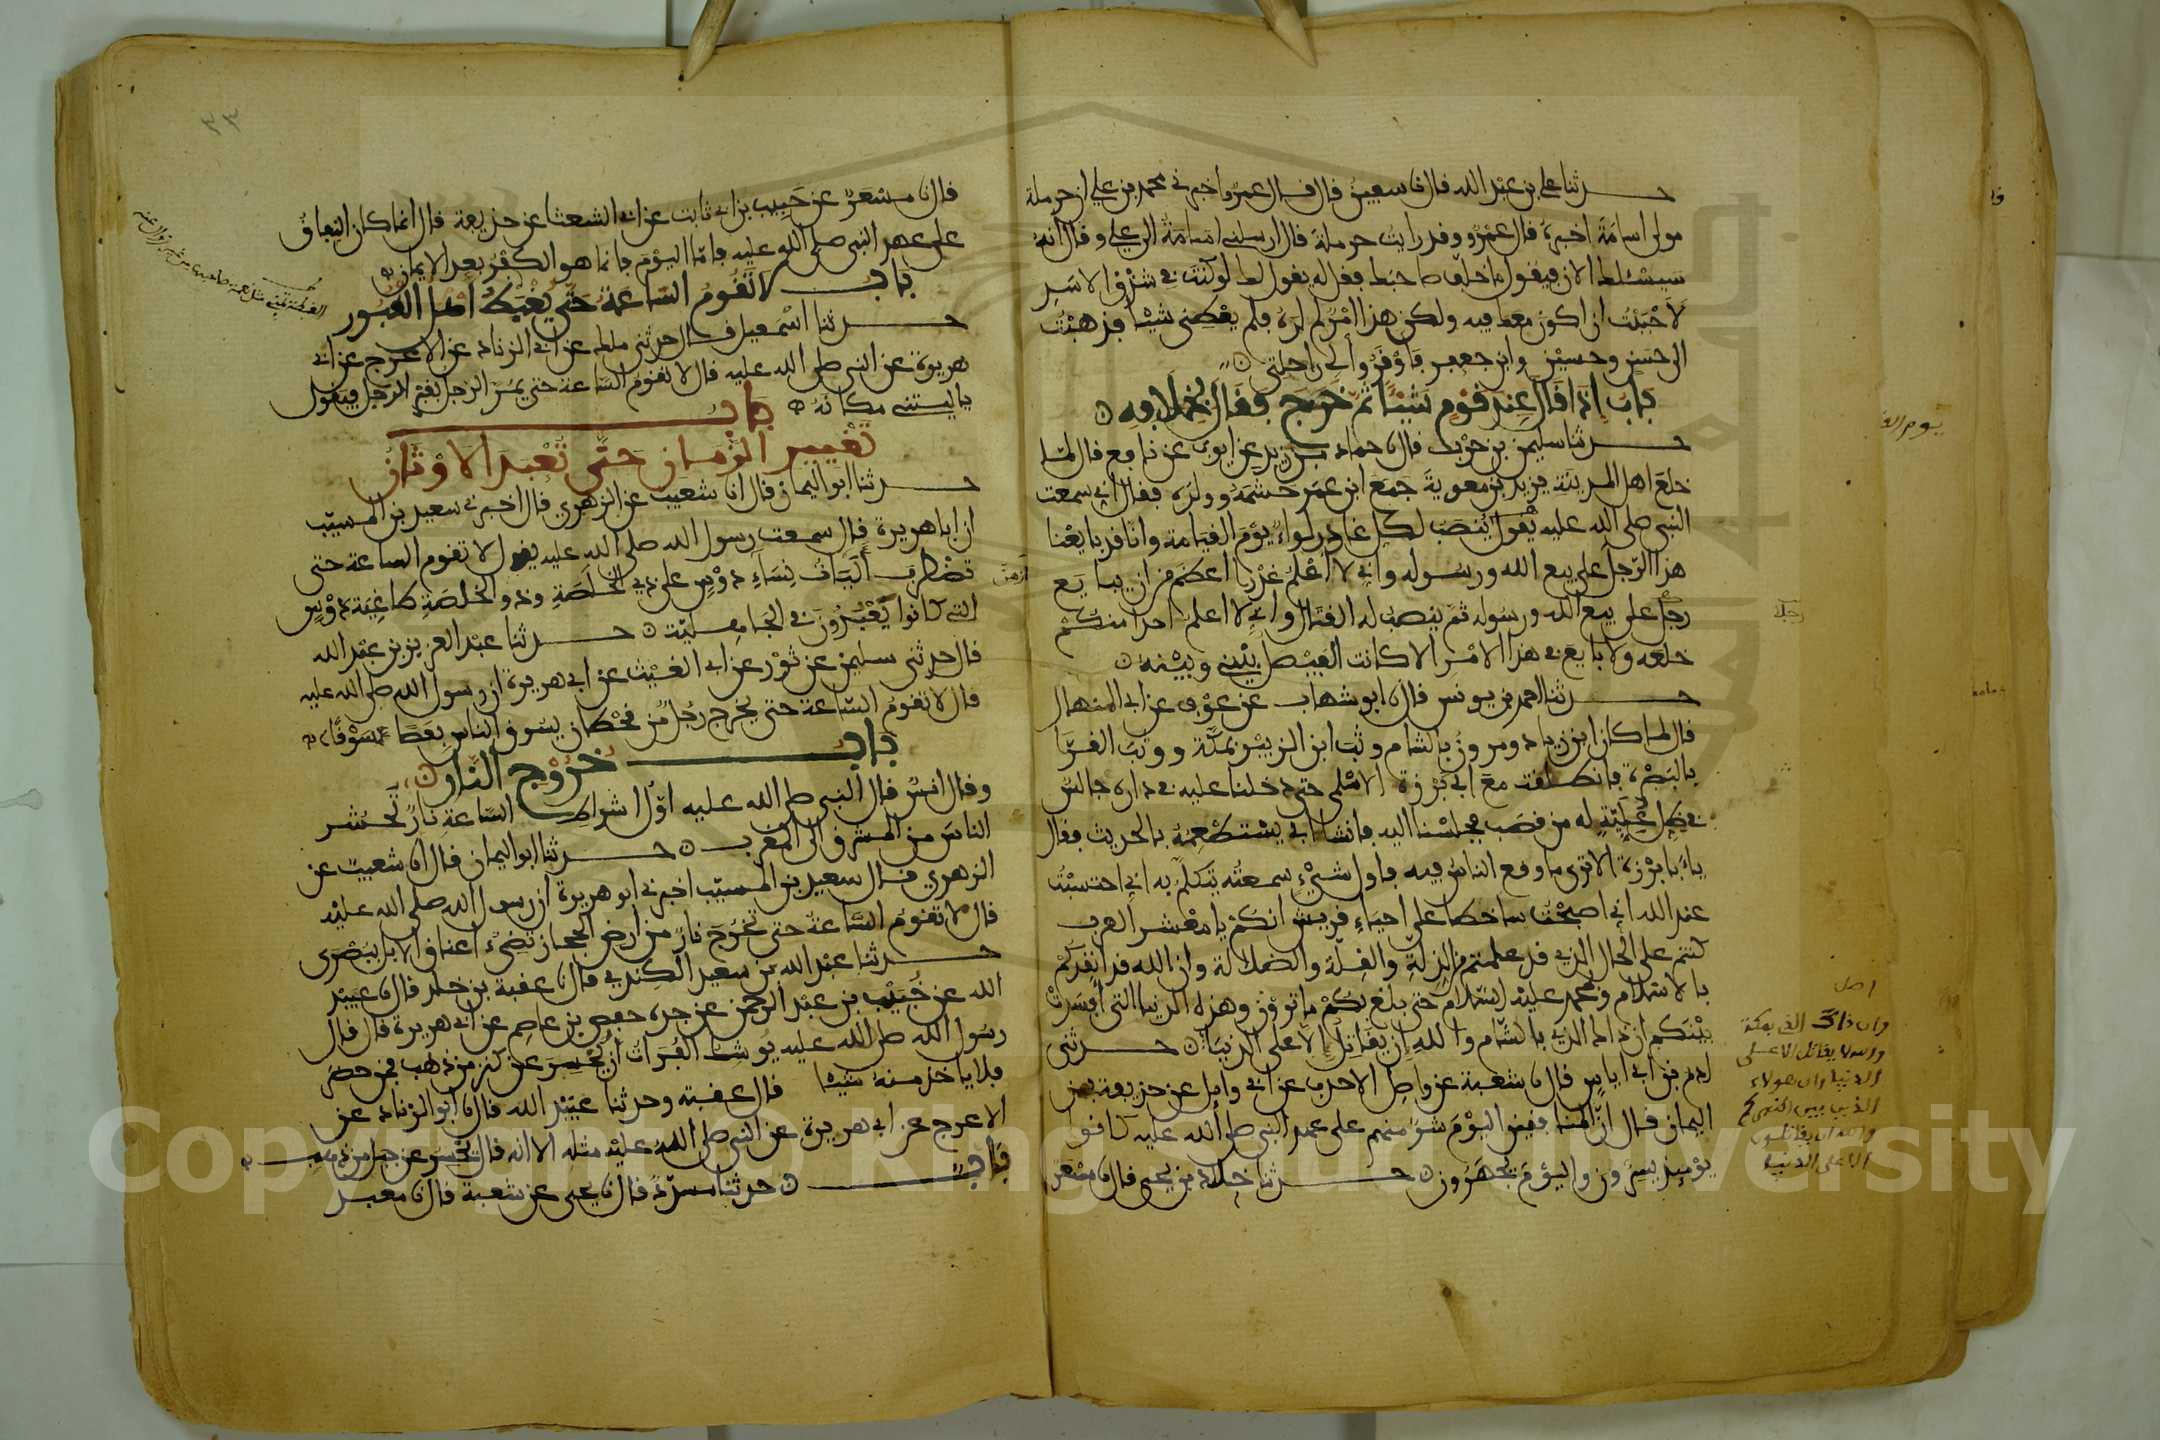 حدثنا علي بن عبد الله قال نا سفين قال قال عمرو اخبرني محمد بن علي ان حرملة
مولى اسامة اخبره قال عمرو وقد رايت حرملة قال ارسلني اسامة الى علي وقال انه
سيسئلك الان فيقول ما خلف صاحبك فقل له يقول لك لو كنت في شدق الاسد
لاحببت ان اكون معك فيه ولكن هذا امر لم اره فلم يعطني شيئا فذهبت
الى حسن وحسين وابن جعفر فاوقروا لي راحلتي
باب اذا قال عند قوم شيئا ثم خرج فقال بخلافه
حدثنا سليمن بن حرب قال نا حماد بن زيد عن ايوب عن نافع قال لما
خلع اهل المدينة يزيد بن معوية جمع ابن عمر حشمه وولده فقال اني سمعت
النبي صلى الله عليه يقول ينصب لكل غادر لواء يوم القيامة وانا قد بايعنا
هذا الرجل على بيع الله ورسوله واني لا اعلم غدرا اعظم من ان يبايع
رجل على بيع الله ورسوله ثم ينصب له القتال واني لا اعلم احدا منكم
خلعه ولا بايع في هذا الامر الا كانت الفيصل بيني وبينه
حدثنا احمد بن يونس قال نا ابو شهاب عن عوف عن ابي المنهال
قال لما كان ابن زياد ومروان بالشام وثب ابن الزبير بمكة ووثب القراء
بالبصرة فانطلقت مع ابي برزة الاسلمي حتى دخلنا عليه في داره جالس
في ظل علية له من قصب فجلسنا اليه فانشا ابي يستطعمه بالحديث فقال
يا ابا برزة الا ترى ما وقع الناس فيه فاول شيء سمعته تكلم به اني احتسبت
عند الله اني اصبحت ساخطا على احياء قريش انكم يا معشر العرب
كنتم على الحال الذي قد علمتم من الذلة والقلة والضلالة وان الله قد انقذكم
بالاسلام وبمحمد عليه السلام حتى بلغ بكم ما ترون وهذه الدنيا التي افسدت
بينكم ان ذاك الذي بالشام والله ان يقاتل الا على الدنيا حدثني
ادم بن ابي اياس قال نا شعبة عن واصل الاحدب عن ابي وايل عن حذيفة بن
اليمان قال ان المنافقين اليوم شر منهم على عهد النبي صلى الله عليه كانوا
يوميذ يسرون واليوم يجهرون حدثنا خلاد بن يحيى قال نا مسعر
يوم الق
رجلا
اصل
وان ذاك الذي بمكة
والله لا يقاتل الا على
الدنيا وان هولاء
الذين بين اظهركم
والله ان يقاتلون
الا على الدنيا
٣٣
قال نا مسعر عن حبيب بن ابي ثابت عن ابي الشعثا عن حذيفة قال انما كان النفاق
على عهد النبي صلى الله عليه فاما اليوم فانما هو الكفر بعد الايمان
باب لا تقوم الساعة حتى يغبط اهل القبور
حدثنا اسمعيل قال حدثني ملك عن ابي الزناد عن الاعرج عن ابي
هريرة عن النبي صلى الله عليه قال لا تقوم الساعة حتى يمر الرجل بقبر الرجل فيقول
يا ليتني مكانه
باب
تغيير الزمان حتى تعبد الاوثان
حدثنا ابو اليمان قال انا شعيب عن الزهري قال اخبرني سعيد بن المسيب
ان ابا هريرة قال سمعت رسول الله صلى الله عليه يقول لا تقوم الساعة حتى
تضطرب اليات نساء دوس على ذي الخلصة وذو الخلصة طاغية دوس
التي كانوا يعبدون في الجاهلية حدثنا عبد العزيز بن عبد الله
قال حدثني سليمن عن ثور عن ابي الغيث عن ابي هريرة ان رسول الله صلى الله عليه
قال لا تقوم الساعة حتى يخرج رجل من قحطان يسوق الناس بعصاه
باب خروج النار
وقال انس قال النبي صلى الله عليه اول اشراط الساعة نار تحشر
الناس من المشرق الى المغرب حدثنا ابو اليمان قال انا شعيب عن
الزهري قال سعيد بن المسيب اخبرني ابو هريرة ان رسول الله صلى الله عليه
قال لا تقوم الساعة حتى تخرج نار من ارض الحجاز تضيء اعناق الابل ببصرى
حدثنا عبد الله بن سعيد الكندي قال نا عقبة بن خالد قال نا عبيد
الله عن خبيب بن عبد الرحمن عن جده حفص بن عاصم عن ابي هريرة قال قال
رسول الله صلى الله عليه يوشك الفرات ان يحسر عن كنز من ذهب فمن حضر
فلا ياخذ منه شيئا قال عقبة وحدثنا عبيد الله قال نا ابو الزناد عن
الاعرج عن ابي هريرة عن النبي صلى الله عليه مثله الا انه قال يحسر عن جبل من ذهب
باب حدثنا مسدد قال نا يحيى عن شعبة قال نا معبد
Copyright © King Saud University